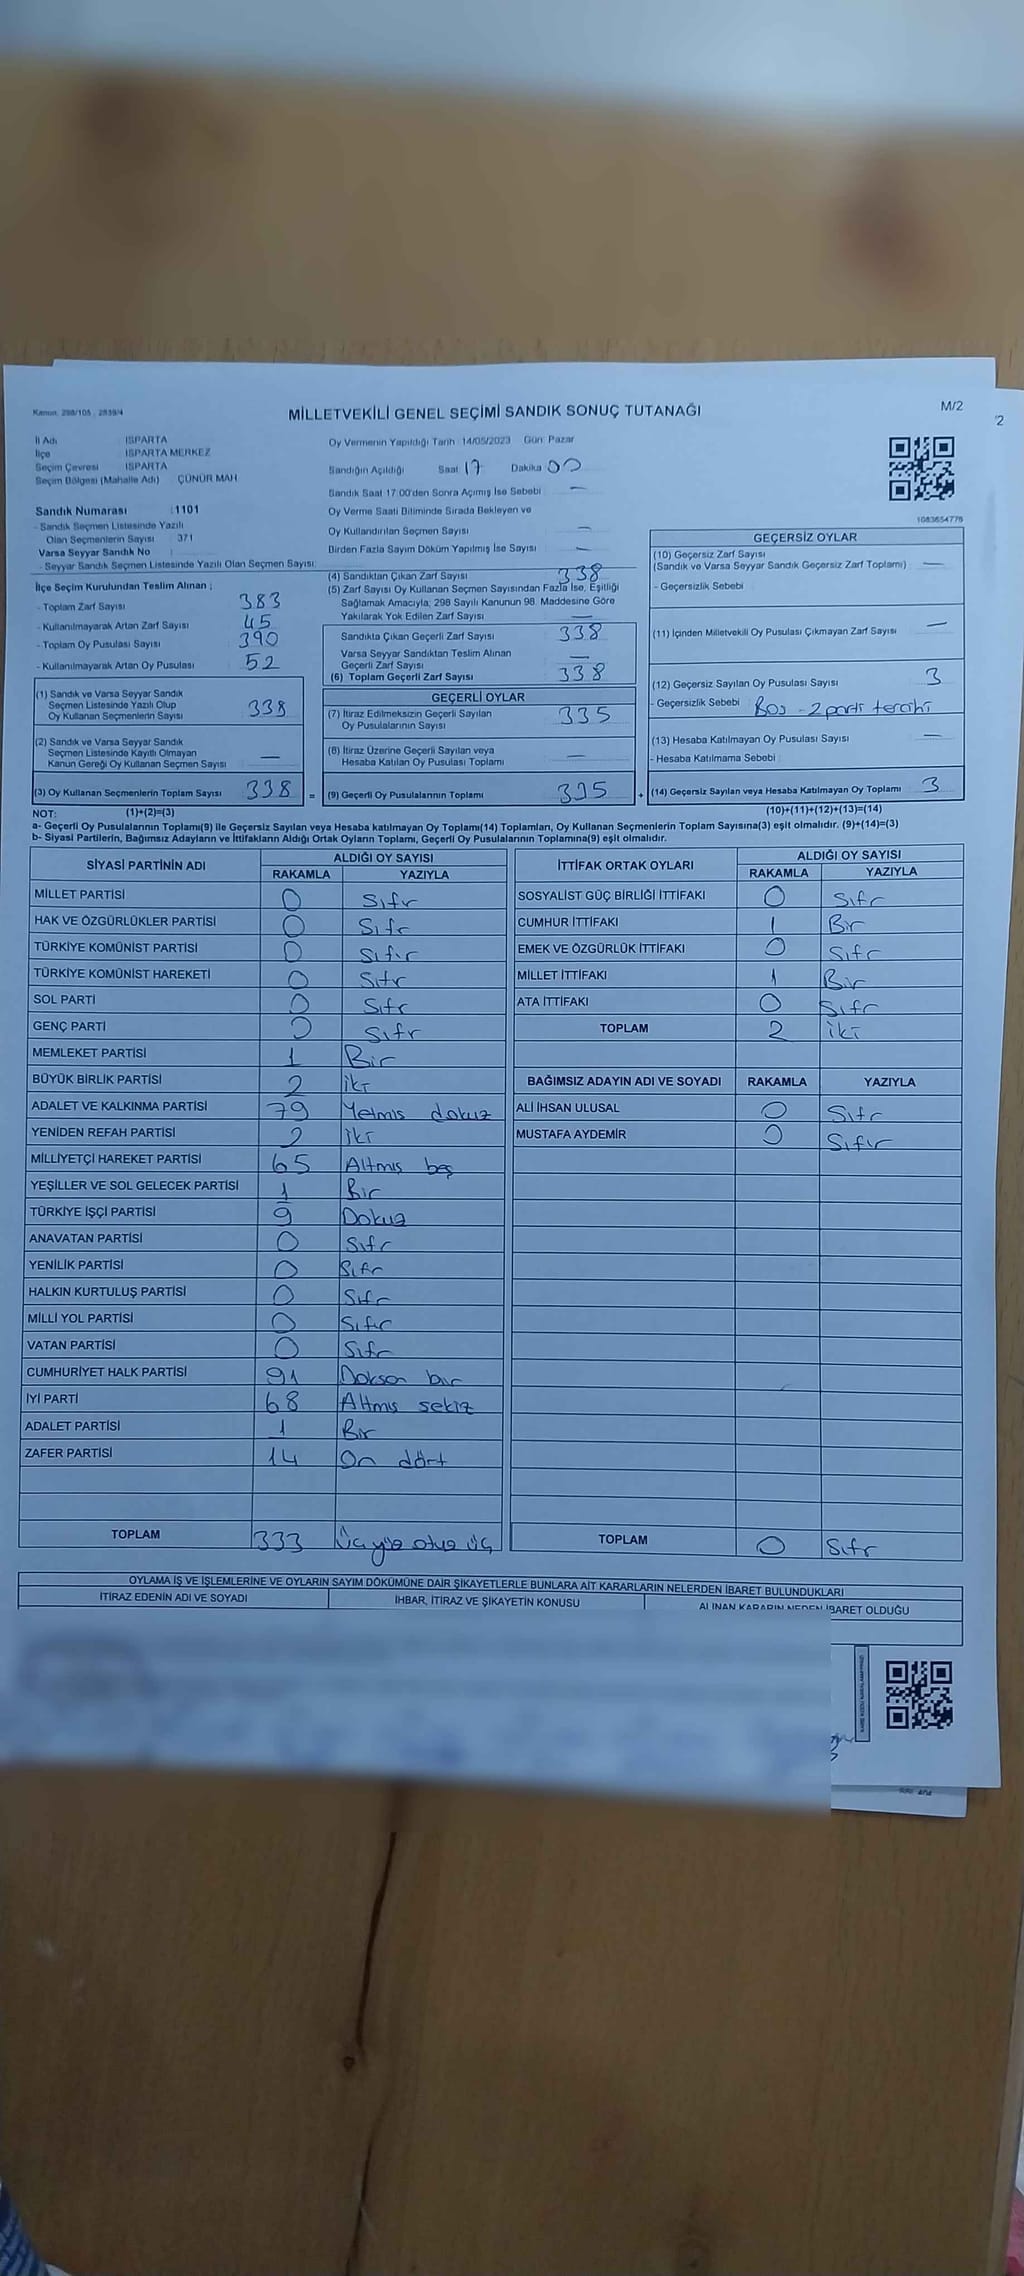 Kanun: 298/105 , 2839/4
MİLLETVEKİLİ GENEL SEÇİMİ SANDIK SONUÇ TUTANAĞI
M/2
/2
İl Adı ISPARTA
İlçe ISPARTA MERKEZ
Seçim Çevresi ISPARTA
Seçim Bölgesi (Mahalle Adı) ÇÜNÜR MAH.
Sandık Numarası :1101
- Sandık Seçmen Listesinde Yazılı
Olan Seçmenlerin Sayısı : 371
Varsa Seyyar Sandık No :
- Seyyar Sandık Seçmen Listesinde Yazılı Olan Seçmen Sayısı:
Oy Vermenin Yapıldığı Tarih :14/05/2023 Gün: Pazar
Sandığın Açıldığı Saat 17 Dakika 00
Sandık Saat 17:00'den Sonra Açımış İse Sebebi : —
Oy Verme Saati Bitiminde Sırada Bekleyen ve
Oy Kullandırılan Seçmen Sayısı —
Birden Fazla Sayım Döküm Yapılmış İse Sayısı —
1083654776
İlçe Seçim Kurulundan Teslim Alınan ;
- Toplam Zarf Sayısı 383
- Kullanılmayarak Artan Zarf Sayısı 45
- Toplam Oy Pusulası Sayısı 390
- Kullanılmayarak Artan Oy Pusulası 52
(1) Sandık ve Varsa Seyyar Sandık
Seçmen Listesinde Yazılı Olup
Oy Kullanan Seçmenlerin Sayısı 338
(2) Sandık ve Varsa Seyyar Sandık
Seçmen Listesinde Kayıtlı Olmayan
Kanun Gereği Oy Kullanan Seçmen Sayısı —
(3) Oy Kullanan Seçmenlerin Toplam Sayısı 338 =
(4) Sandıktan Çıkan Zarf Sayısı 338
(5) Zarf Sayısı Oy Kullanan Seçmen Sayısından Fazla İse, Eşitliği
Sağlamak Amacıyla; 298 Sayılı Kanunun 98. Maddesine Göre
Yakılarak Yok Edilen Zarf Sayısı —
Sandıkta Çıkan Geçerli Zarf Sayısı 338
Varsa Seyyar Sandıktan Teslim Alınan
Geçerli Zarf Sayısı —
(6) Toplam Geçerli Zarf Sayısı 338
GEÇERLİ OYLAR
(7) İtiraz Edilmeksizin Geçerli Sayılan
Oy Pusulalarının Sayısı 335
(8) İtiraz Üzerine Geçerli Sayılan veya
Hesaba Katılan Oy Pusulası Toplamı —
(9) Geçerli Oy Pusulalarının Toplamı 335 +
GEÇERSİZ OYLAR
(10) Geçersiz Zarf Sayısı
(Sandık ve Varsa Seyyar Sandık Geçersiz Zarf Toplamı) —
- Geçersizlik Sebebi :
(11) İçinden Milletvekili Oy Pusulası Çıkmayan Zarf Sayısı —
(12) Geçersiz Sayılan Oy Pusulası Sayısı 3
- Geçersizlik Sebebi : Boş - 2 parti tercihi
(13) Hesaba Katılmayan Oy Pusulası Sayısı —
- Hesaba Katılmama Sebebi :
(14) Geçersiz Sayılan veya Hesaba Katılmayan Oy Toplamı 3
NOT: (1)+(2)=(3) (10)+(11)+(12)+(13)=(14)
a- Geçerli Oy Pusulalarının Toplamı(9) ile Geçersiz Sayılan veya Hesaba katılmayan Oy Toplamı(14) Toplamları, Oy Kullanan Seçmenlerin Toplam Sayısına(3) eşit olmalıdır. (9)+(14)=(3)
b- Siyasi Partilerin, Bağımsız Adayların ve İttifakların Aldığı Ortak Oyların Toplamı, Geçerli Oy Pusulalarının Toplamına(9) eşit olmalıdır.
SİYASİ PARTİNİN ADI ALDIĞI OY SAYISI
RAKAMLA YAZIYLA
MİLLET PARTİSİ 0 Sıfr
HAK VE ÖZGÜRLÜKLER PARTİSİ 0 Sıfr
TÜRKİYE KOMÜNİST PARTİSİ 0 Sıfır
TÜRKİYE KOMÜNİST HAREKETİ 0 Sıfr
SOL PARTİ 0 Sıfr
GENÇ PARTİ 0 Sıfr
MEMLEKET PARTİSİ 1 Bir
BÜYÜK BİRLİK PARTİSİ 2 iki
ADALET VE KALKINMA PARTİSİ 79 Yetmiş dokuz
YENİDEN REFAH PARTİSİ 2 iki
MİLLİYETÇİ HAREKET PARTİSİ 65 Altmış beş
YEŞİLLER VE SOL GELECEK PARTİSİ 1 Bir
TÜRKİYE İŞÇİ PARTİSİ 9 Dokuz
ANAVATAN PARTİSİ 0 Sıfr
YENİLİK PARTİSİ 0 Sıfr
HALKIN KURTULUŞ PARTİSİ 0 Sıfr
MİLLİ YOL PARTİSİ 0 Sıfır
VATAN PARTİSİ 0 Sıfr
CUMHURİYET HALK PARTİSİ 91 Doksan bir
İYİ PARTİ 68 Altmış sekiz
ADALET PARTİSİ 1 Bir
ZAFER PARTİSİ 14 On dört
TOPLAM 333 Üç yüz otuz üç
İTTİFAK ORTAK OYLARI ALDIĞI OY SAYISI
RAKAMLA YAZIYLA
SOSYALİST GÜÇ BİRLİĞİ İTTİFAKI 0 Sıfr
CUMHUR İTTİFAKI 1 Bir
EMEK VE ÖZGÜRLÜK İTTİFAKI 0 Sıfr
MİLLET İTTİFAKI 1 Bir
ATA İTTİFAKI 0 Sıfr
TOPLAM 2 iki
BAĞIMSIZ ADAYIN ADI VE SOYADI RAKAMLA YAZIYLA
ALİ İHSAN ULUSAL 0 Sıfr
MUSTAFA AYDEMİR 0 Sıfır
TOPLAM 0 Sıfr
OYLAMA İŞ VE İŞLEMLERİNE VE OYLARIN SAYIM DÖKÜMÜNE DAİR ŞİKAYETLERLE BUNLARA AİT KARARLARIN NELERDEN İBARET BULUNDUKLARI
İTİRAZ EDENİN ADI VE SOYADI İHBAR, İTİRAZ VE ŞİKAYETİN KONUSU ALINAN KARARIN NEDEN İBARET OLDUĞU